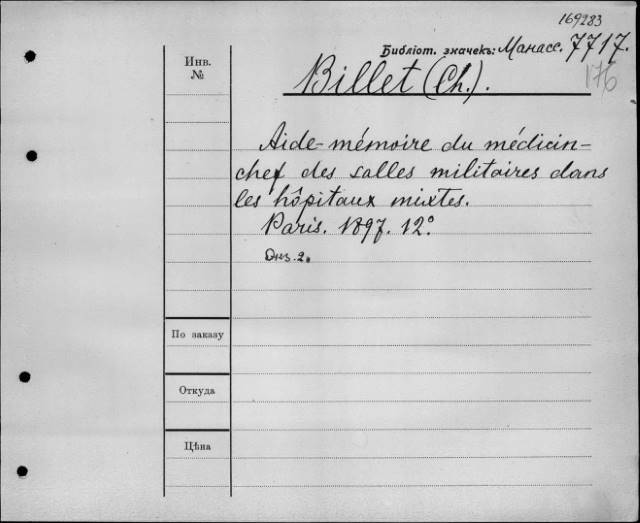 169283
Библіот. значекъ: Манасс. 7717.
176
Инв.
№
Billet (Ch.).
Aide-mémoire du médicin-
chef des salles militaires dans
les hôpitaux mixtes.
Paris. 1897. 12º
По заказу
Откуда
Цѣна